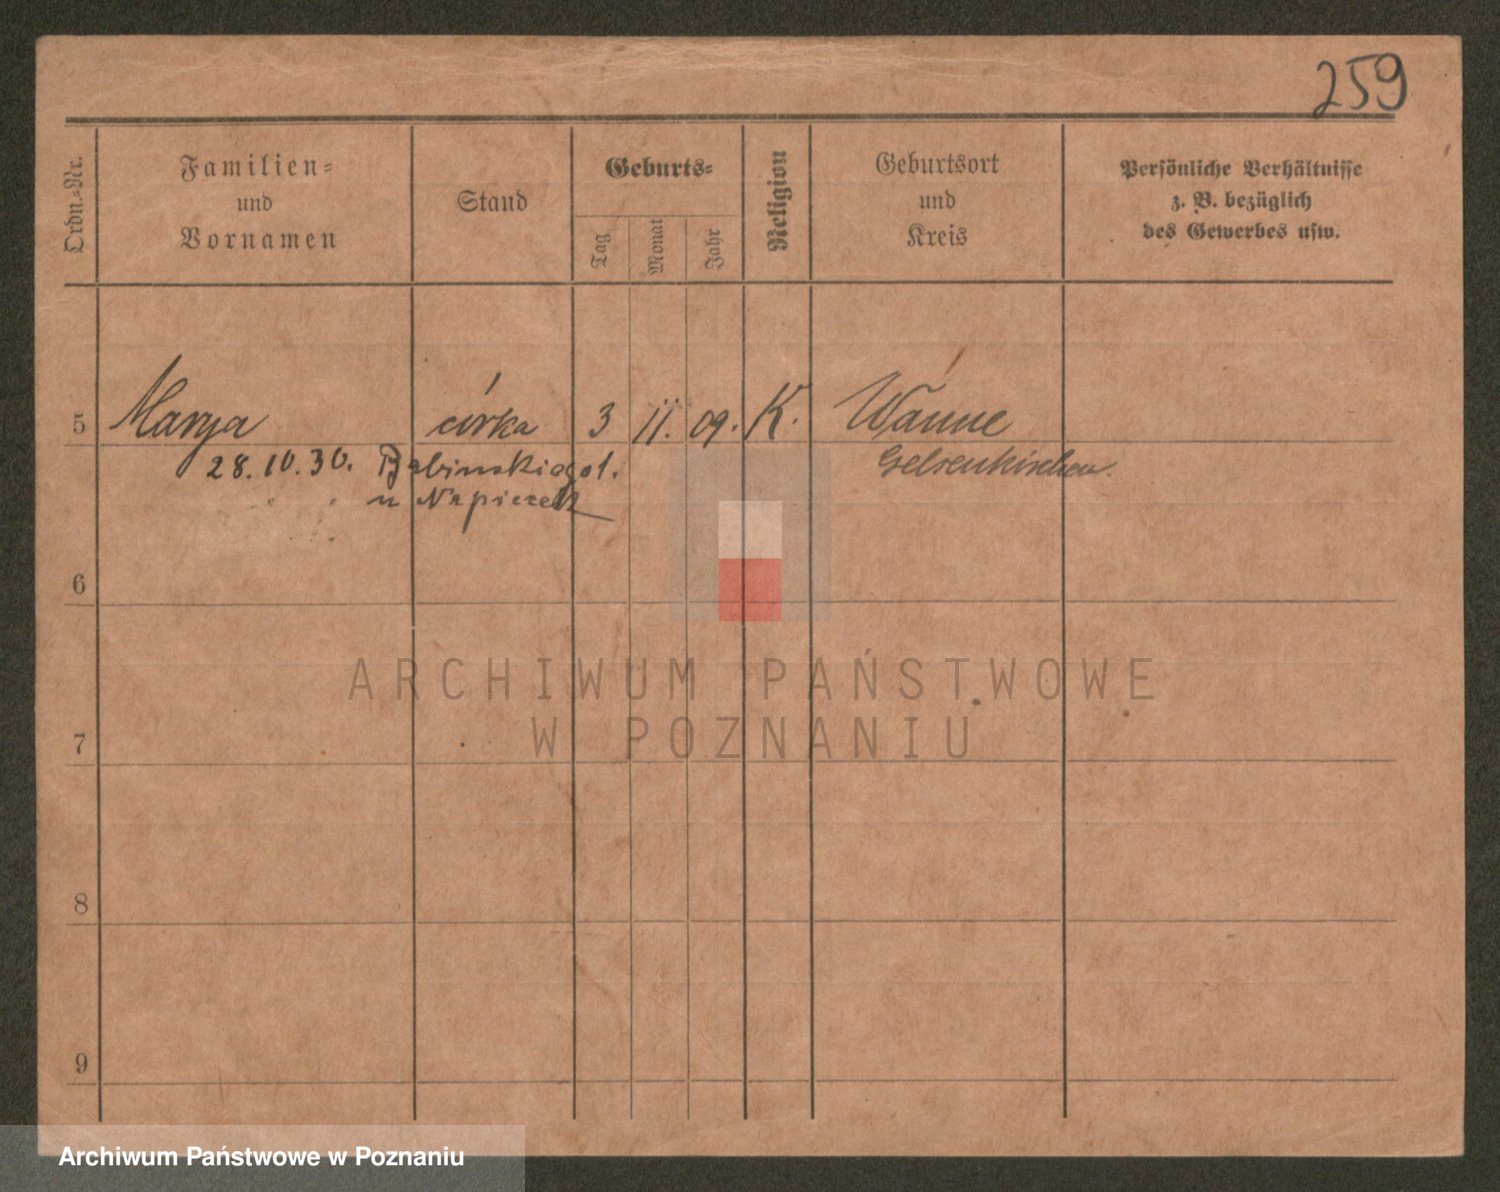 259
Ordn.-Nr.
Familien-
und
Vornamen
Stand
Geburts-
Tag
Monat
Jahr
Religion
Geburtsort
und
Kreis
Persönliche Verhältnisse
z. B. bezüglich
des Gewerbes usw.
5 Marya córka 3 11. 09. K. Wanne
28. 10. 30. Babinskiego 1. Gelsenkirchen.
u Napierek
6
7
8
9
ARCHIWUM PAŃSTWOWE
W POZNANIU
Archiwum Państwowe w Poznaniu